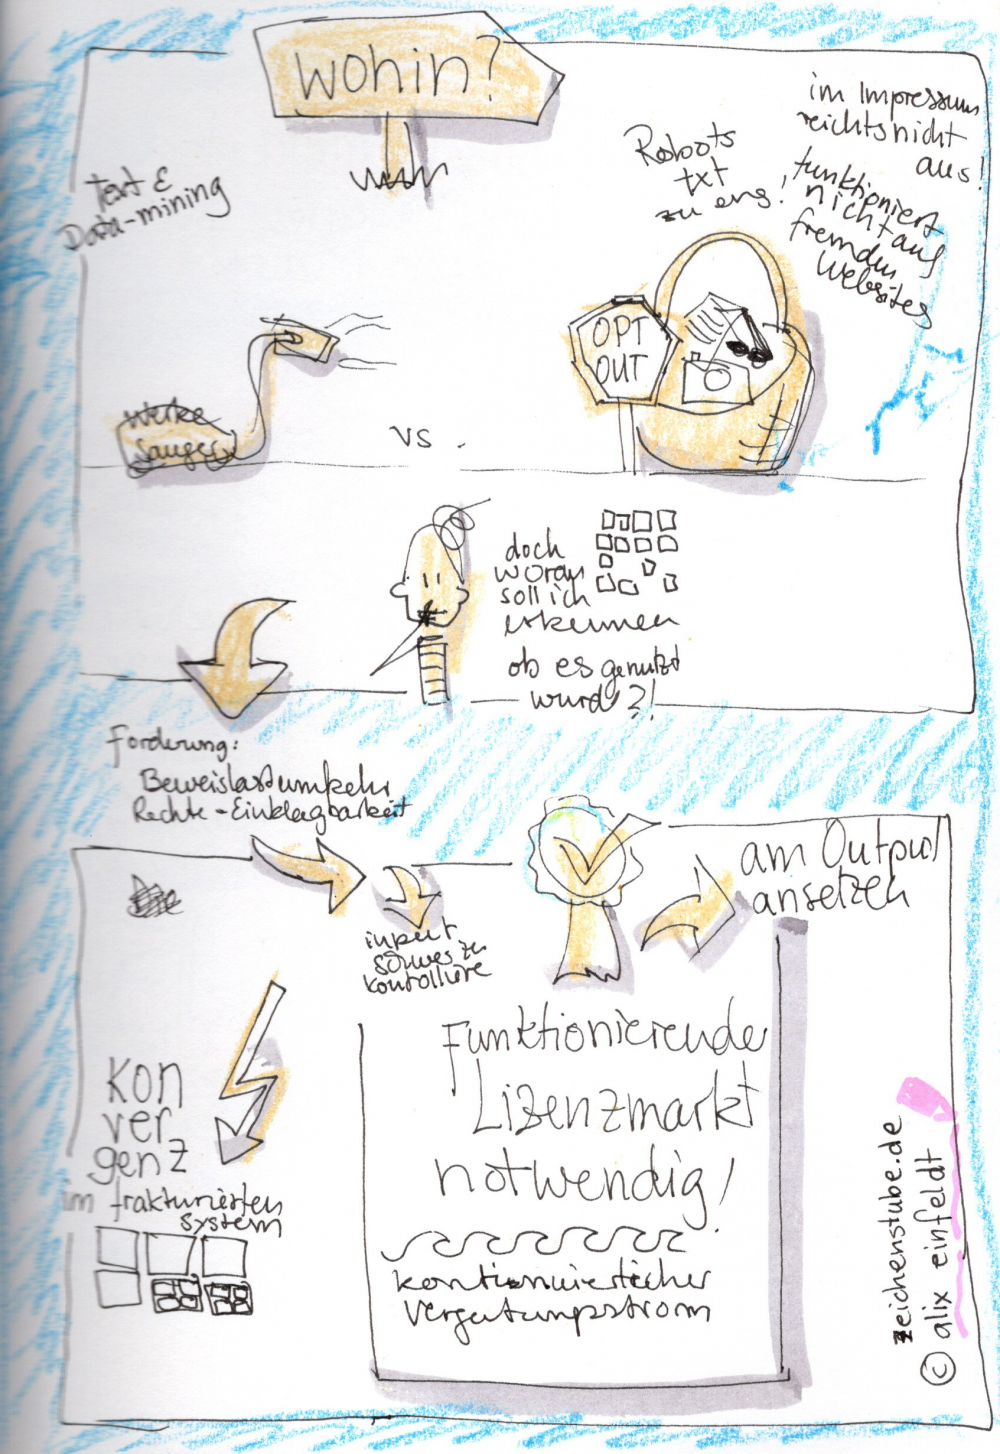 wohin?
Text &
Data-mining
Robots
txt
zu eng!
im Impressum
reichts nicht
aus!
funktioniert
nicht auf
fremden
Websites
OPT
OUT
Werke
Sauger
vs.
doch
woran
soll ich
erkennen
ob es genutzt
wurde?!
Forderung:
Beweislastumkehr
Rechte-Einklagbarkeit
input
schwer zu
kontrolliere
am Output
ansetzen
Kon
ver
genz
im frakturierten
system
Funktionierende
Lizenzmarkt
notwendig!
kontinuierlicher
Vergütungsstrom
zeichenstube.de
© alix einfeldt